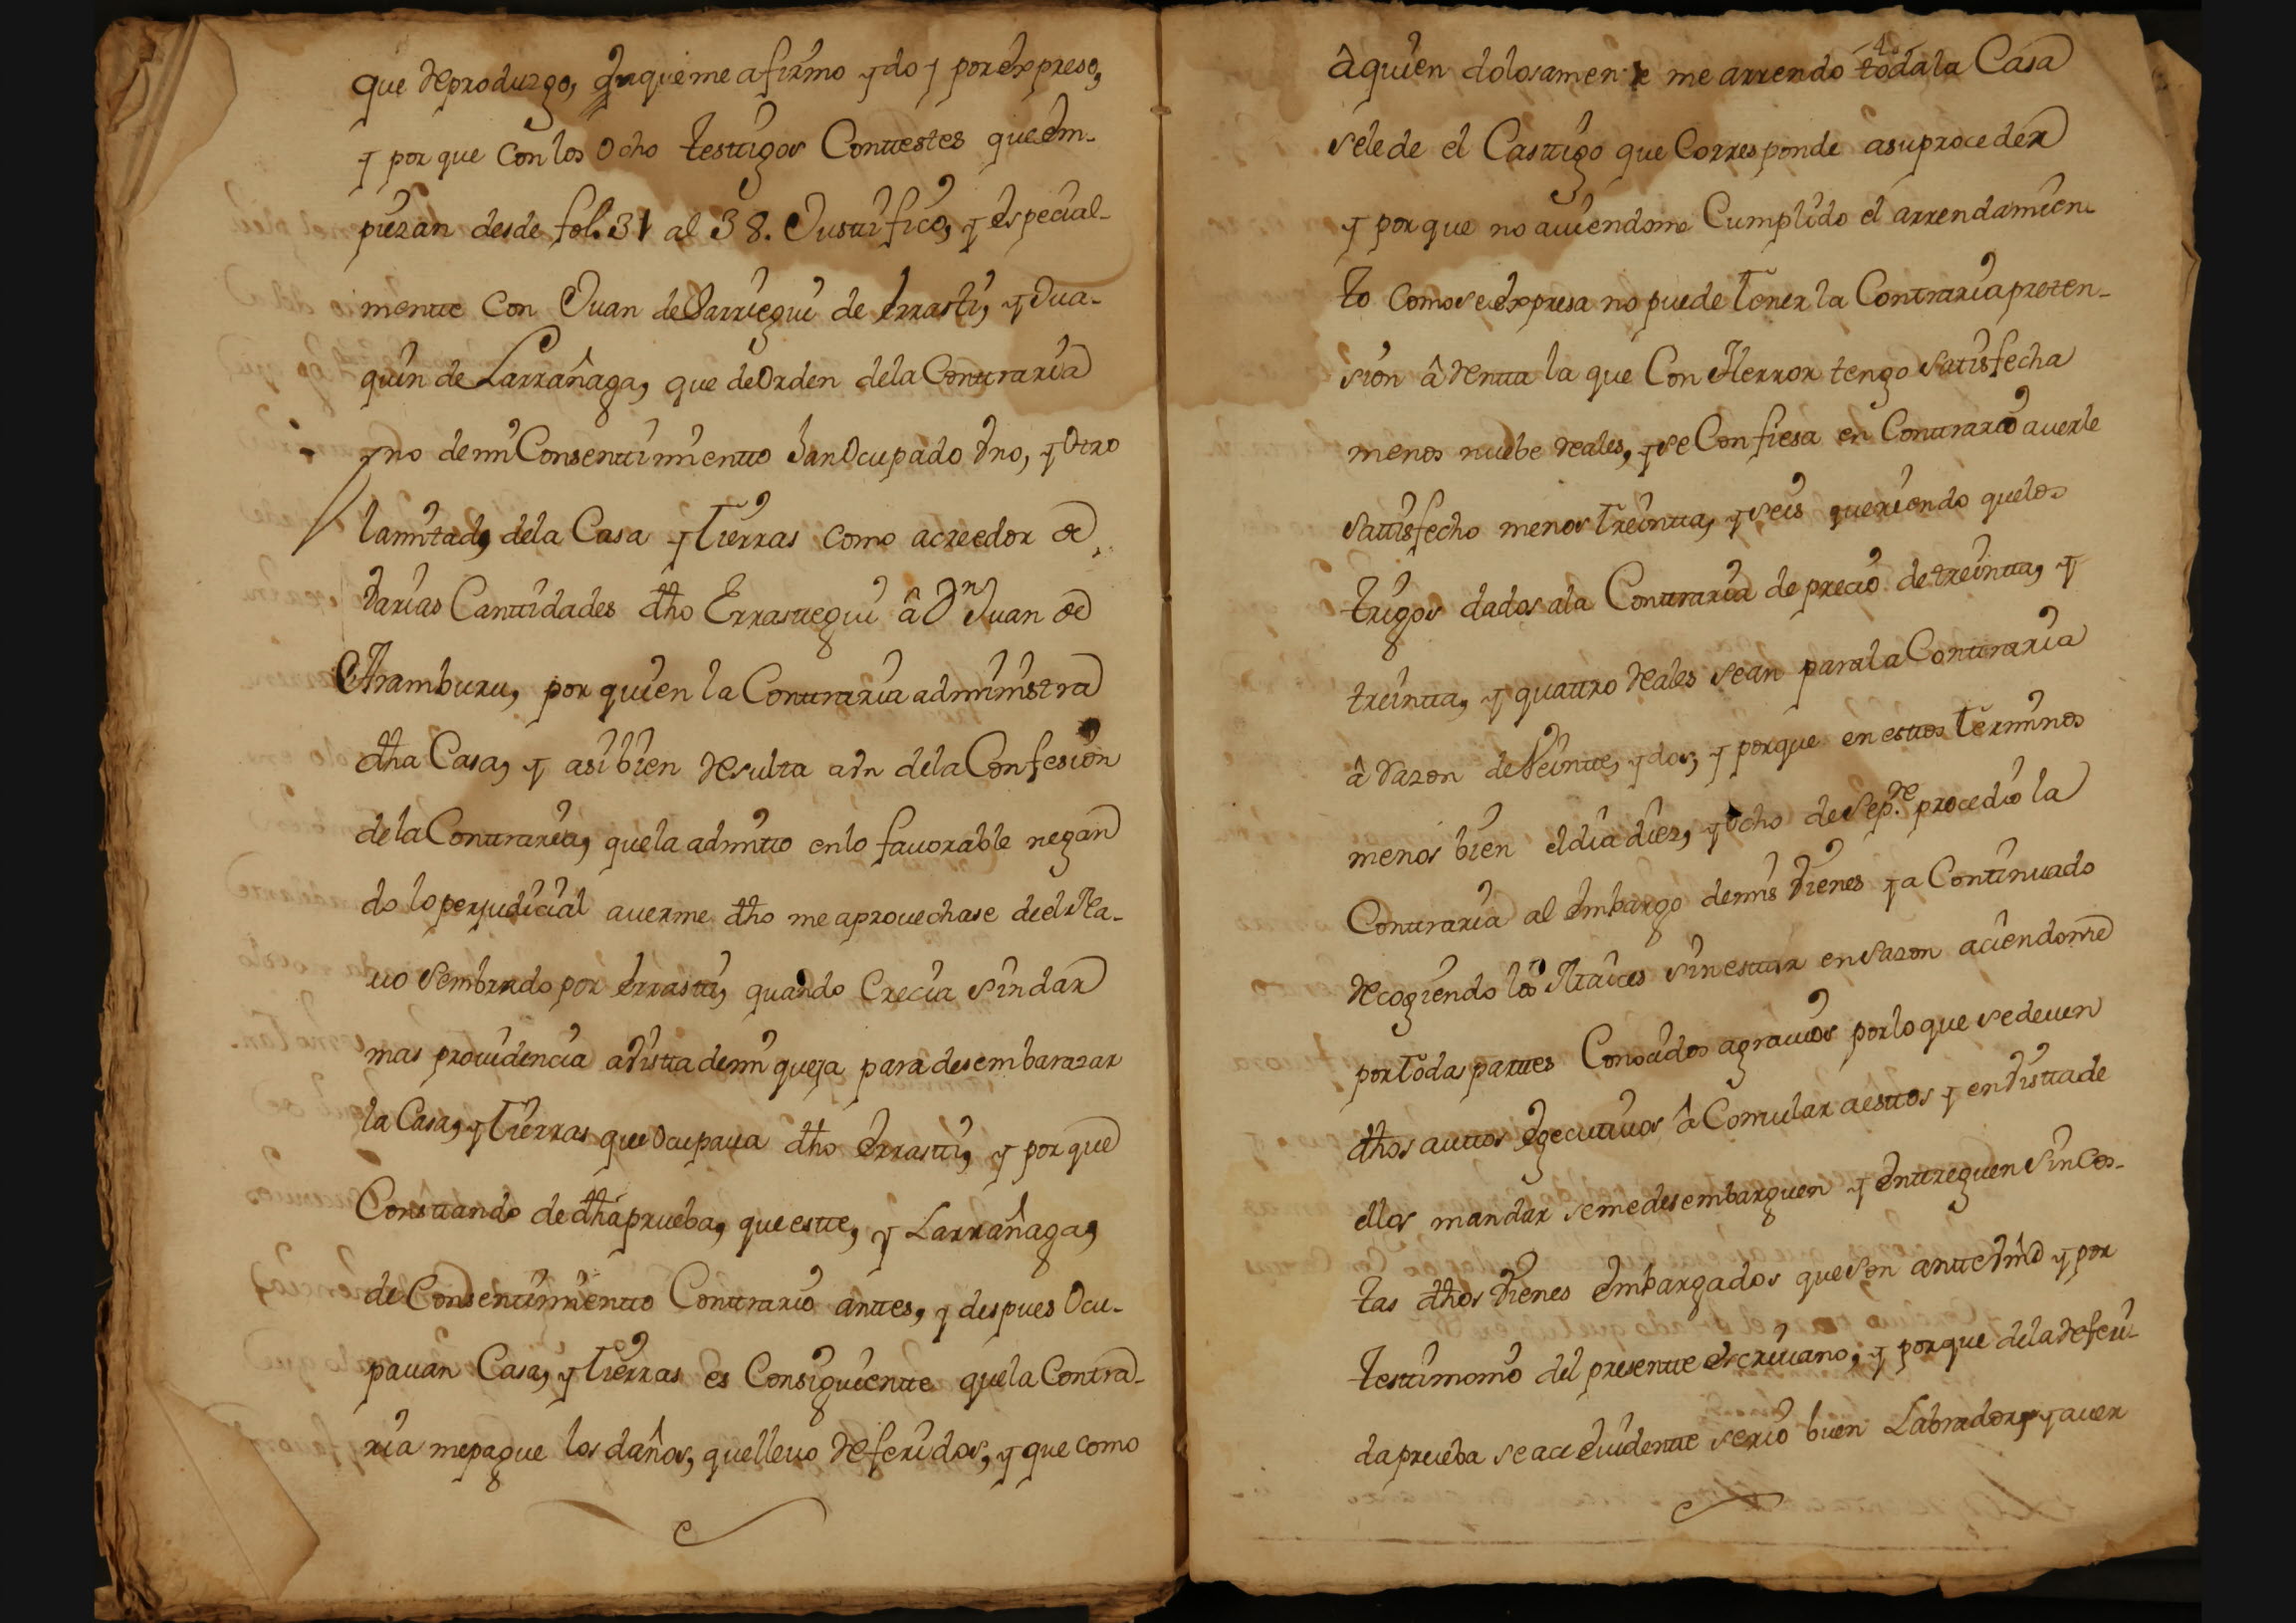 que Reproduzgo, en que me afirmo y doy por expreso,
y por que con los ocho testigos Contestes que em-
piezan desde fol. 31 al 38. Justifico, y especial-
mente con Juan de Sarriegui de Errasti, y Jua-
quin de Larrañaga, que de orden dela Contraria
y no de mi Consentimiento han ocupado uno, y otro
la mitad, dela Casa y Tierras como acreedor de
varias Cantidades dho Errastegui â Dn Juan de
Aramburu, por quien la Contraria administra
dha Casa, y asi bien Resulta aun dela Confesion
de la Contraria, que la admito en lo favorable negan
do lo perjudicial averme dho me aprovechase de el Na-
vo sembrado por Errasti, quando crecia sin dar
mas providencia a vista de mi queja para desembarazar
la Casa, y Tierras que ocupava dho Errasti, y por que
Constando de dha prueba, que este, y Larrañaga,
de Consentimiento Contrario antes, y despues ocu-
pavan Casa, y Tierras es Consiguiente que la Contra-
ria me pague los daños, que llevo Referidos, y que como
â quien dolosamente me arrendo toda la Casa
se le de el Castigo que Corresponde a su proceder
y por que no aviendome Cumplido el arrendamien-
to como se expresa no puede Tener la Contraria preten-
sion â Renta la que Con Herror tengo satisfecha
menos nuebe Reales, y se Confiesa en Contrario averle
satisfecho menos Treinta, y seis queriendo que los
trigos dados a la Contraria de precio de treinta, y
treinta, y quattro Reales sean para la Contraria
â Razon de Veinte, y dos, y porque en estos Terminos
menos bien el dia diez, y ocho de Sepre procedio la
Contraria al embargo de mis Vienes y a Continuado
Recogiendo los Maices sin estar en sazon aciendome
por Todas partes Conocidos agravios por lo que se deven
dhos autos Egecutivos â Comular a estos y en Vista de
ellos mandar se me desembarguen y entreguen sin Cos-
tas dhos Vienes embargados que son ante Vmd y por
testimonio del presente escrivano; y porque de la Referi-
da prueba se ace evidente ser io buen Labrador, y aver